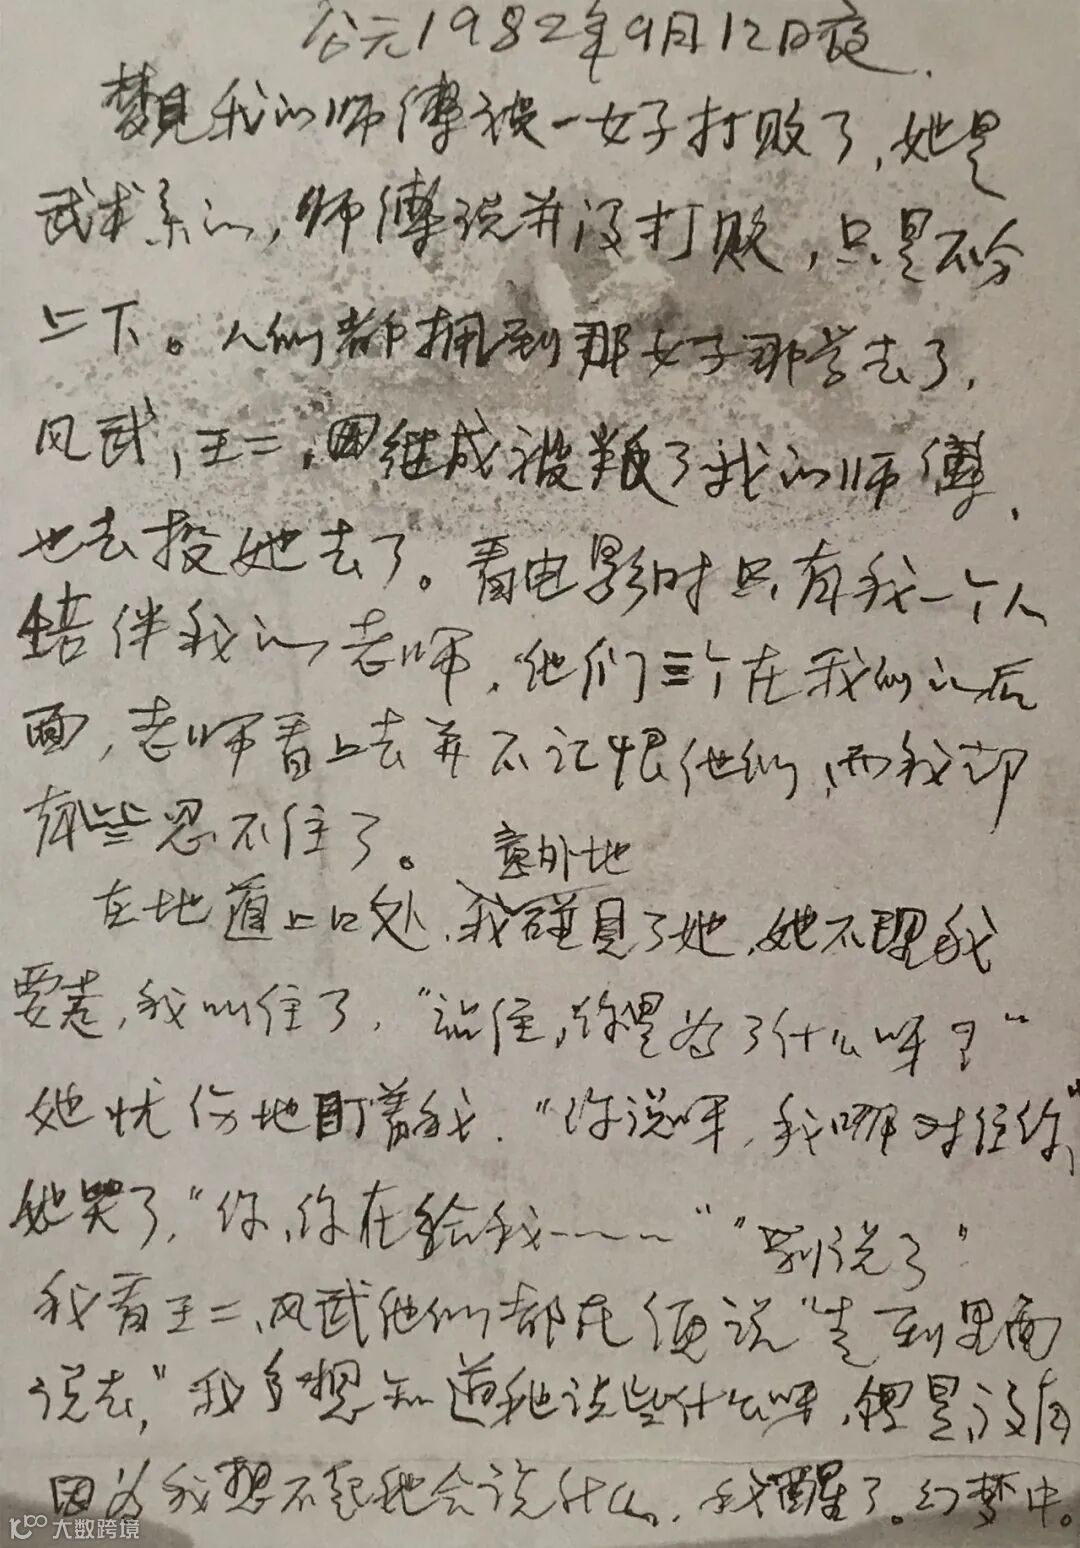 公元1982年9月12日夜.
梦见我的师傅被一女子打败了,她是
武术系的,师傅说并没打败,只是不分
上下。人们都拥到那女子那学去了,
风武,王二,继成被叛了我的师傅,
也去投她去了。看电影时只有我一个人
陪伴我的老师,他们三个在我们的后
面,老师看上去并不记恨他们,而我却
有些忍不住了。
意外地
在地道上口处,我碰见了她,她不理我
要走,我叫住了,“站住,你是为了什么呀?”
她忧伤地盯着我.“你说呀,我哪对住你”
她哭了,“你,你在给我-----”“别说了”
我看王二、风武他们都在便说“走到里面
说去,”我多想知道她说些什么呀,但是没有
因为我想不起她会说什么,我醒了。幻梦中。
大数跨境